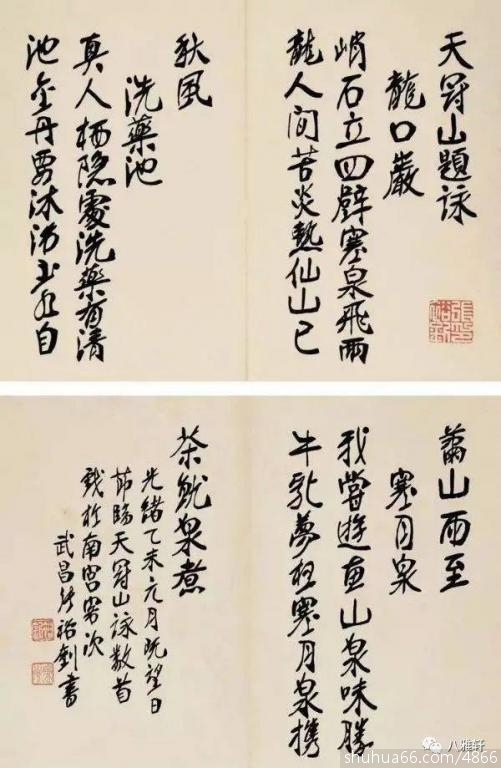 天冠山題詠
龍口巖
峭石立四壁寒泉飛兩
龍人間苦炎熱仙山已
秋風
洗藥池
真人栖隱處洗藥有清
池金丹要沐浴玉水自
山雨至
寒月泉
我嘗遊惠山泉味勝
牛乳夢想寒月泉攜
茶就泉煮
光緒乙未元月既望日
節臨天冠山詠數首
於南宮次
武昌張裕釗書
八雅轩
shuhua66.com/4866